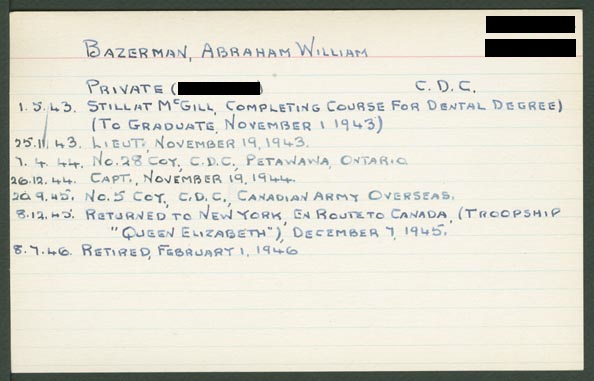 BAZERMAN, ABRAHAM WILLIAM
PRIVATE ( ) C.D.C.
1.5.43. STILL AT McGILL, COMPLETING COURSE FOR DENTAL DEGREE)
(TO GRADUATE, NOVEMBER 1 1943)
25.11.43. LIEUT., NOVEMBER 19, 1943.
7.4.44. NO.28 COY., C.D.C., PETAWAWA, ONTARIO.
26.12.44. CAPT., NOVEMBER 19, 1944.
20.9.45. NO.5 COY., C.D.C., CANADIAN ARMY OVERSEAS.
8.12.45. RETURNED TO NEW YORK, EN ROUTE TO CANADA, (TROOPSHIP
"QUEEN ELIZABETH"), DECEMBER 7, 1945.
8.7.46. RETIRED, FEBRUARY 1, 1946